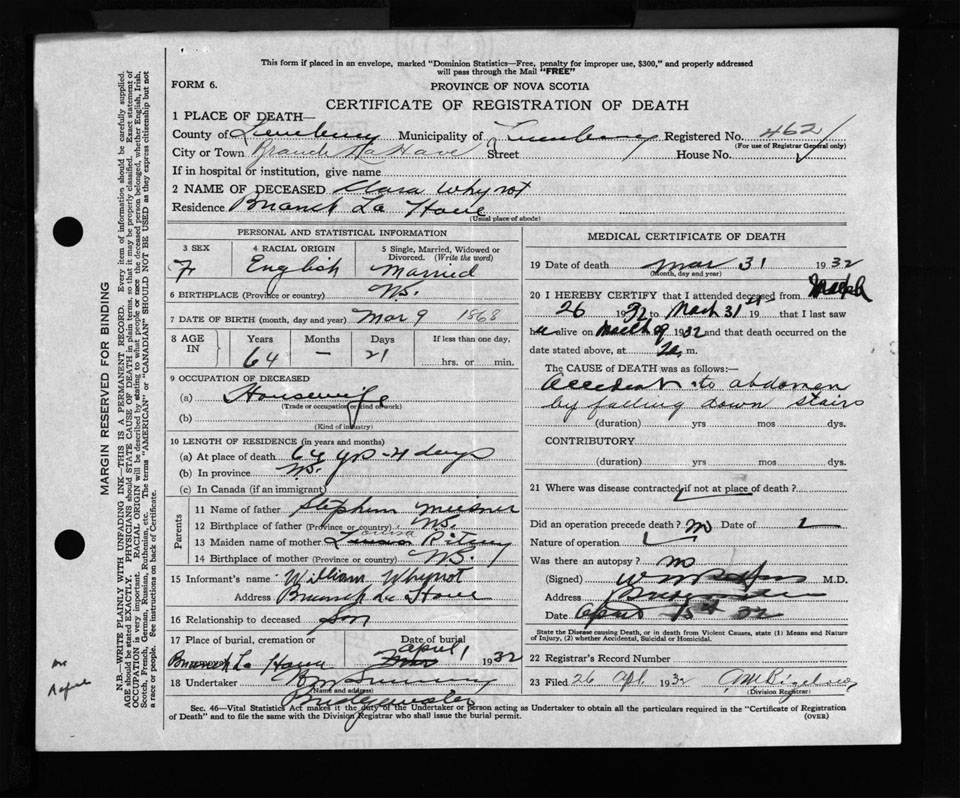 This form if placed in an envelope, marked "Dominion Statistics—Free, penalty for improper use, $300," and properly addressed
will pass through the Mail "FREE"
FORM 6.
PROVINCE OF NOVA SCOTIA
CERTIFICATE OF REGISTRATION OF DEATH
1 PLACE OF DEATH—
County of Lunenburg Municipality of Lunenburg Registered No. 462
(For use of Registrar General only)
City or Town Branch La Have Street House No.
If in hospital or institution, give name
2 NAME OF DECEASED Clara Whynot
Residence Branch La Have
(Usual place of abode)
PERSONAL AND STATISTICAL INFORMATION
3 SEX 4 RACIAL ORIGIN 5 Single, Married, Widowed or Divorced. (Write the word)
F English Married
6 BIRTHPLACE (Province or country) N.S.
7 DATE OF BIRTH (month, day and year) Mar 9 1868
8 AGE IN Years Months Days If less than one day,
64 – 21 hrs. or min.
9 OCCUPATION OF DECEASED
(a) Housewife
(Trade or occupation or kind of work)
(b)
(Kind of industry)
10 LENGTH OF RESIDENCE (in years and months)
(a) At place of death 64 yrs - 21 days
(b) In province N.S.
(c) In Canada (if an immigrant)
Parents
11 Name of father Stephen Meisner
12 Birthplace of father (Province or country) N.S.
13 Maiden name of mother
14 Birthplace of mother (Province or country) N.S.
15 Informant's name William Whynot
Address Branch La Have
16 Relationship to deceased Son
17 Place of burial, cremation or Date of burial
Branch La Have April 1 1932
18 Undertaker
(Name and address)
Bridgewater
MEDICAL CERTIFICATE OF DEATH
19 Date of death Mar 31 1932
(Month, day and year)
20 I HEREBY CERTIFY that I attended deceased from March
26 1932 to March 31, 19 that I last saw
h er alive on March 1932 and that death occurred on
date stated above, at m.
The CAUSE OF DEATH was as follows:—
Accident to abdomen
by falling down stairs
(duration) yrs mos dys.
CONTRIBUTORY
(duration) yrs mos dys.
21 Where was disease contracted if not at place of death?
Did an operation precede death? no Date of
Nature of operation
Was there an autopsy? no
(Signed) M.D.
Address Bridgewater
Date April 32
State the Disease causing Death, or in death from Violent Causes, state (1) Means and Nature
of Injury, (2) whether Accidental, Suicidal or Homicidal.
22 Registrar's Record Number
23 Filed 26 Apl 1932
(Division Registrar)
Sec. 46—Vital Statistics Act makes it the duty of the Undertaker or person acting as Undertaker to obtain all the particulars required in the "Certificate of Registration
of Death" and to file the same with the Division Registrar who shall issue the burial permit. (OVER)
MARGIN RESERVED FOR BINDING
N.B.—WRITE PLAINLY WITH UNFADING INK—THIS IS A PERMANENT RECORD. Every item of information should be carefully supplied.
AGE should be stated EXACTLY. PHYSICIANS should STATE CAUSE OF DEATH in plain terms, so that it may be properly classified. Exact statement of
OCCUPATION is very important. RACIAL ORIGIN will be described by stating to what people or race the deceased person belonged, whether English, Irish,
Scotch, French, German, Russian, Ruthenian, etc. The terms "AMERICAN" or "CANADIAN" SHOULD NOT BE USED as they express citizenship but not
a race or people. See instructions on back of Certificate.